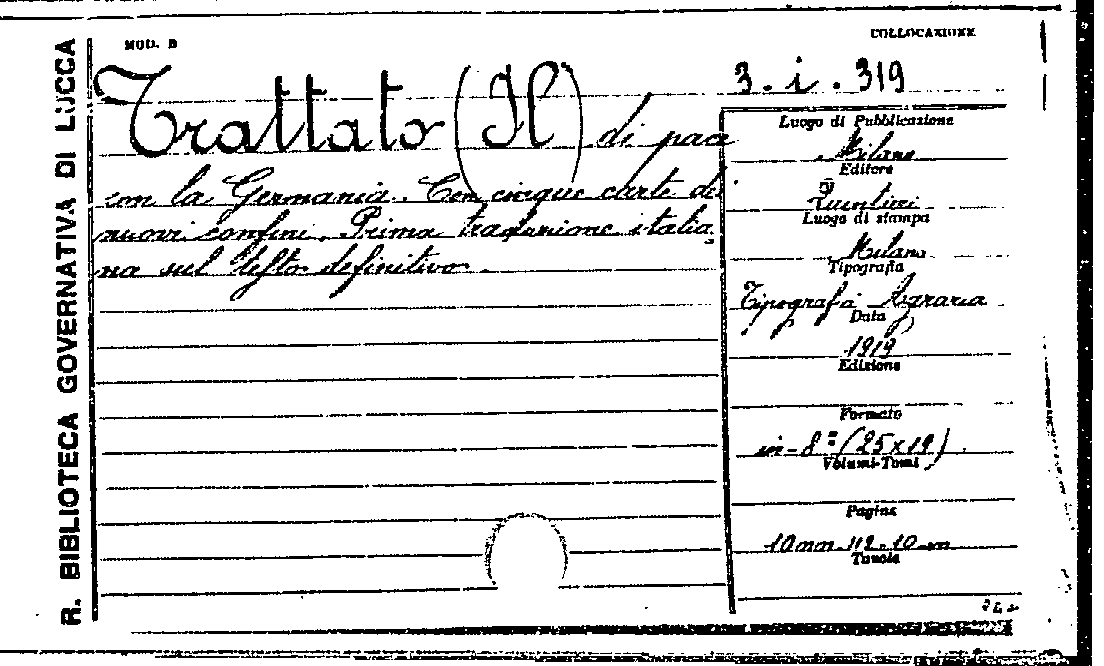 R. BIBLIOTECA GOVERNATIVA DI LUCCA
MOD. B
COLLOCAZIONE
3. i. 319
Trattato (Il) di pace
con la Germania. Con cinque carte dei
nuovi confini. Prima traduzione italia
na sul testo definitivo.
Luogo di Pubblicazione
Milano
Editore
Quintieri
Luogo di stampa
Milano
Tipografia
Tipografia Agraria
Data
1919
Edizione
Formato
in-8° (25x19)
Volumi-Tomi
Pagine
10 nn. 112. 10 nn
Tavole